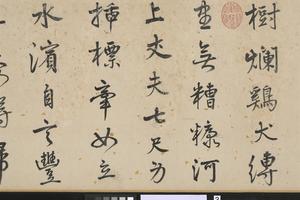 樹爛鷄犬縛
無糟糠河
上丈夫七尺
揷標牽女立
水濱自言豐